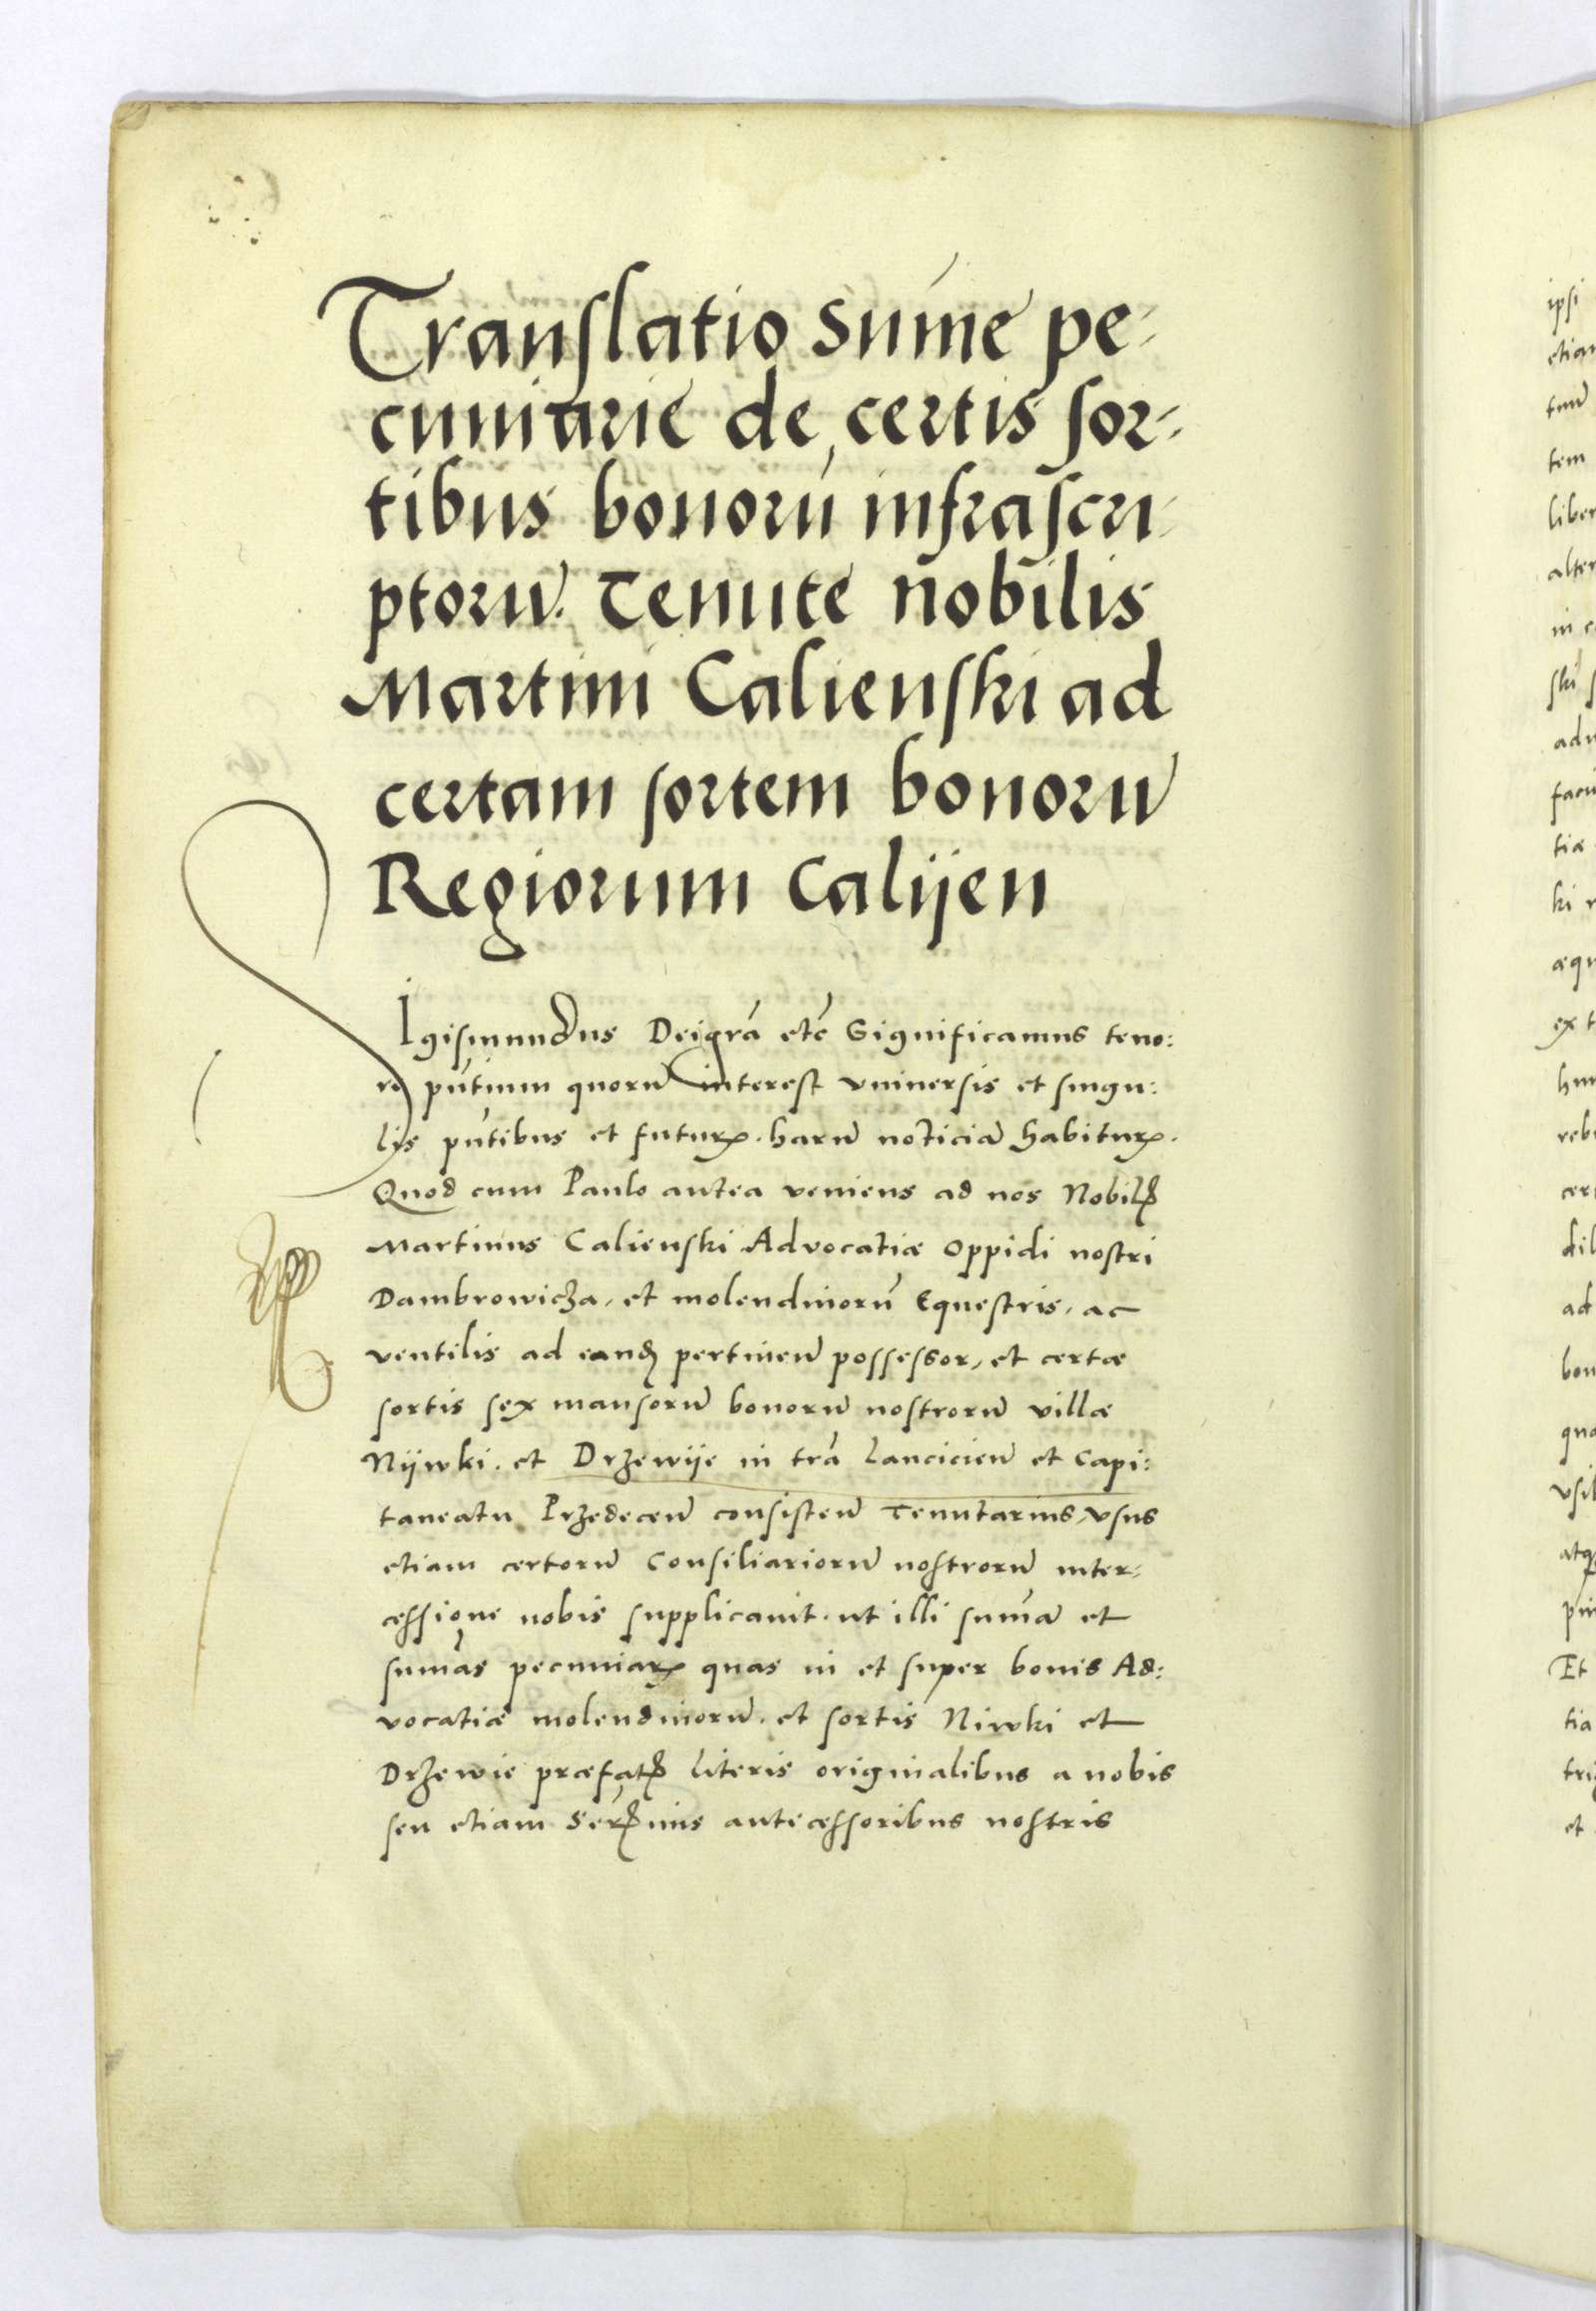 Translatio sum̄e pe-
cuniarie de certis sor-
tibus bonorū infrascri-
ptorū. Tenute nobilis
Martini Calienski ad
certam sortem bonorū
Regiorum Calijen
Sigismundus Dei gr̄a etc̄ Significamus teno:
re pn̄tium quorū interest vniuersis et singu:
lis pn̄tibus et futurꝝ. harū noticiā habiturꝝ.
Quod cum Paulo antea veniens ad nos Nobilꝭ
Martinus Calienski Advocatiæ Oppidi nostri
Dambrowicza, et molendinorū Equestris, ac
ventilis ad eandꝫ pertinen̄ possessor, et certæ
sortis sex mansorū bonorū nostrorū villæ
Nijwki. et Drzewije in tr̄a Lancicien̄ et Capi:
taneatu Przedecen̄ consisten̄ Tenutarius, vsus
etiam certorū Consiliariorū nostrorū inter-
cessione nobis supplicauit. ut illi sum̄ā et
sum̄as pecuniarꝝ quas in et super bonis Ad:
vocatiæ molendinorū. et sortis Niwki et
Drzewie præfatꝭ literis originalibus a nobis
seu etiam Serꝭmis antecessoribus nostris
ipsi
tem
et
ad
Et
tia